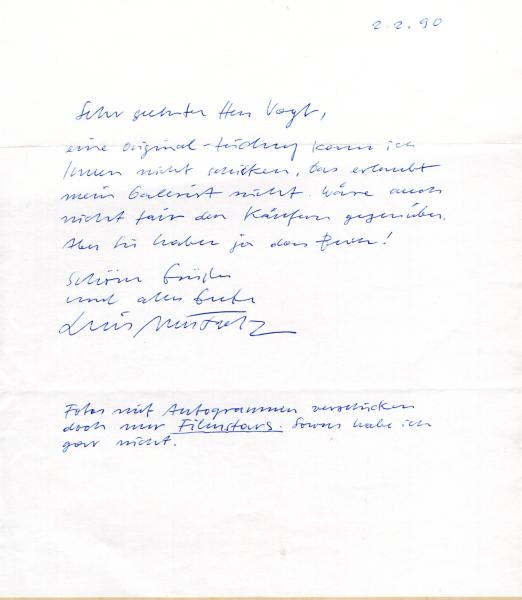 2.2.90
Sehr geehrter Herr Vogt,
eine Original-Zeichnung kann ich
Ihnen nicht schicken, das erlaubt
mein Galerist nicht. Wäre auch
nicht fair den Käufern gegenüber.
Aber Sie haben ja das Buch!
Schöne Grüße
und alles Gute
Luis Murschetz
Fotos mit Autogrammen verschicken
doch nur Filmstars. Sowas habe ich
gar nicht.